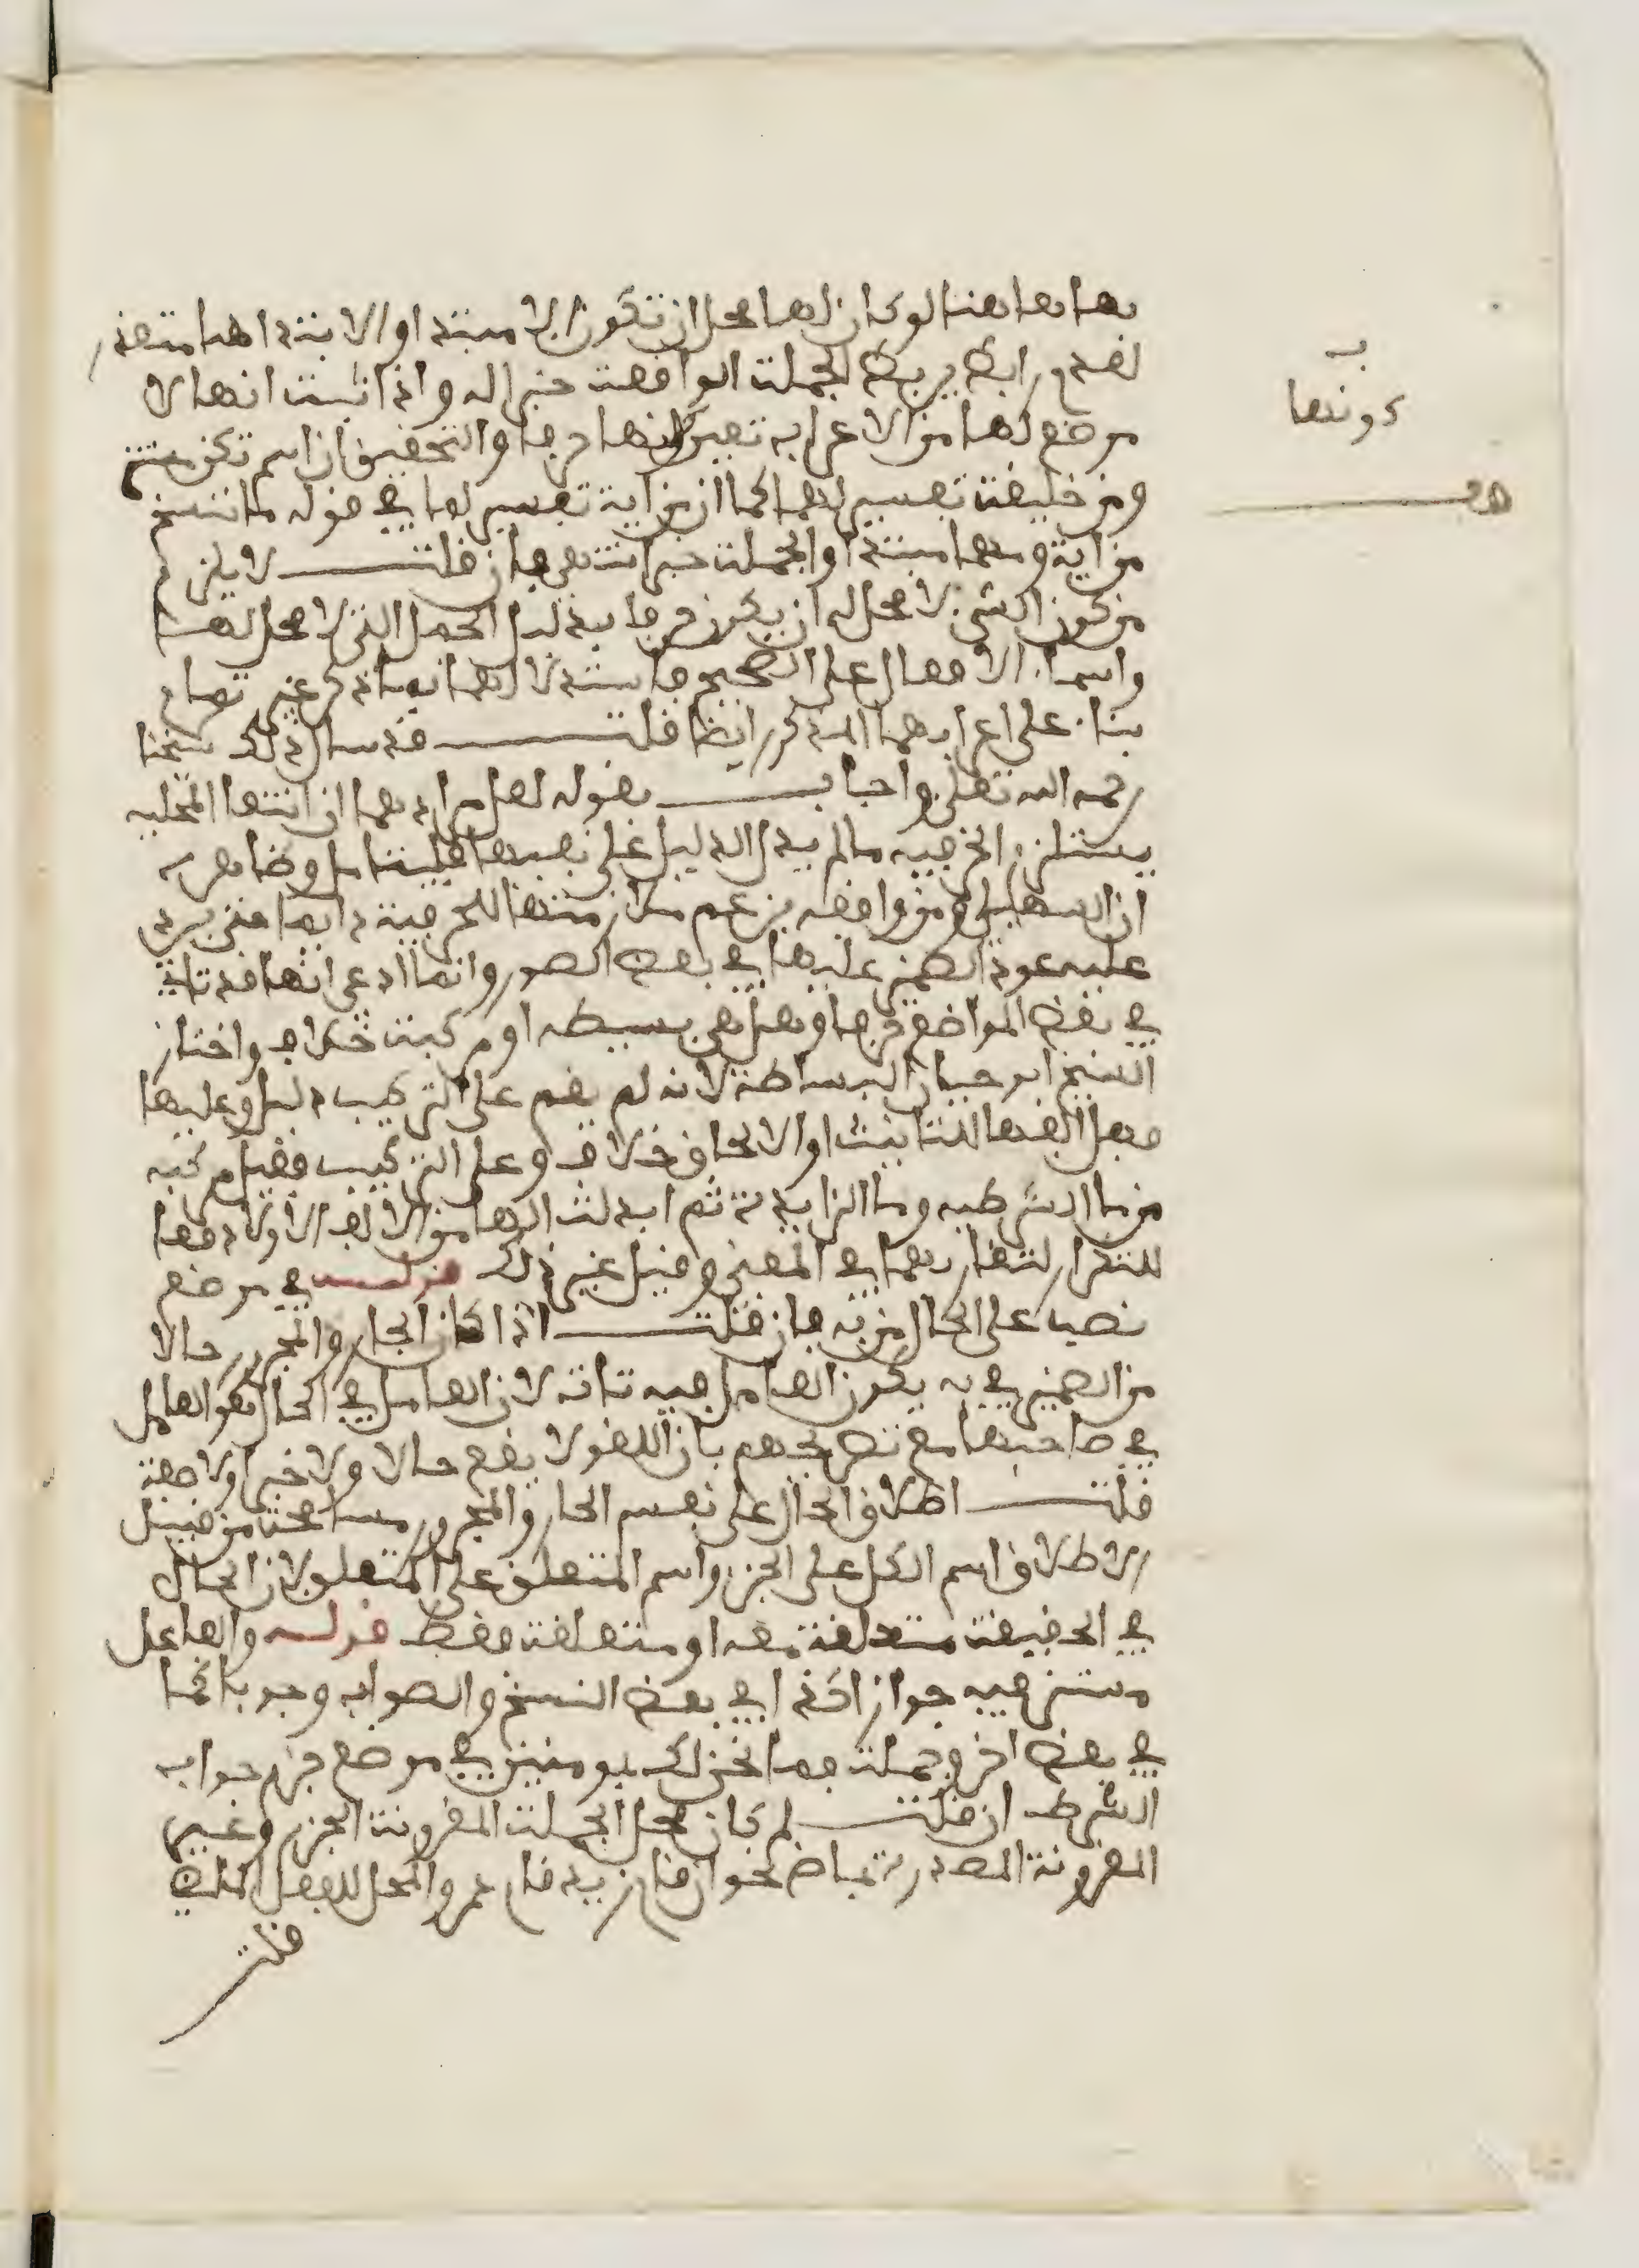 بها بها هنا لو كان لها محل ان تكون الا مبتدا والابتدا هنا متعذر
لعدم رابط يربط الجملة الواقعة خبرا له واذا ثبت انها لا
موضع لها من الاعراب تعين كونها حرفا والتحقيق ان اسم تكن مستتر
ومن خليقة تفسير لمهما كما ان من اية تفسير لما في قوله ما ننسخ
من اية ومهما مبتدا والجملة خبر انتهى فان قلت لا يلزم
من كون الشيء لا محل له ان يكون حرفا بدليل الجمل التي لا محل لها
واسماء الافعال على الصحيح فاستدلالهما بما ذكر غير تام
بناء على اعرابهما المذكور ايضا قلت قد سال ذلك شيخنا
رحمه الله تعالى واجاب بقوله لعل مرادهما ان انتفا المحلية
يستلزم الحرفية ما لم يدل الدليل على نفيها قلت اصل وضاهر به
ان السهيلي ومن وافقه يزعم ملازمتها للحرفية دايما حتى يرد
عليه عود الضمير عليها في بعض الصور وانما ادعى انها قد تاتي
في بعض المواضع حرفا وهل هي بسيطة او مركبة خلاف واختار
الشيخ ابو حيان البساطة لانه لم يقم على التركيب دليل وعليها
فهل الفها للتانيث او الالحاق خلاف وعلى التركيب فقيل مركبة
من ما الشرطية وما الزايدة ثم ابدلت الها من الالف الاولى دفعا
للتكرار لتقاربهما في المعنى وقيل غير ذلك قوله في موضع
نصب على الحال من به فان قلت اذا كان الجار والمجرور حالا
من الضمير في به يكون العامل فيه تاتنه لان العامل في الحال هو العامل
في صاحبها مع تصريحهم بان اللغو لا يقع حالا ولا خبرا ولا صفة
قلت اطلاق الحال على نفس الجار والمجرور مسامحة من قبيل
الاطلاق اسم الكل على الجزء واسم المتعلق على المتعلق لان الحال
في الحقيقة متعلقة معه او متعلقة فقط قوله والفاعل
مستتر فيه جوازا كذا في بعض النسخ والصواب وجوبا كما
في بعض اخر وجملة فما نحن لك بمومنين في موضع جزم جواب
الشرط ان قلت لم كان محل الجملة المقرونة الجزم وغير
المقرونة المصدرة بماض نحو ان قام زيد قام عمرو المحل للفعل الماضي
قلت
ب
كونها
هو